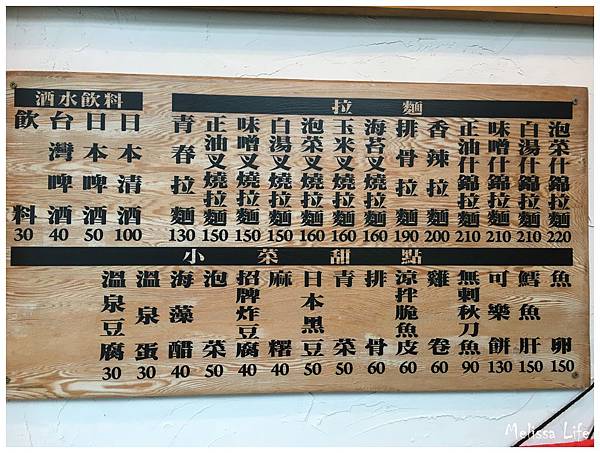 酒水飲料
飲料 30
台灣啤酒 40
日本啤酒 50
日本清酒 100
拉麵
青春拉麵 130
正油叉燒拉麵 150
味噌叉燒拉麵 150
白湯叉燒拉麵 150
泡菜叉燒拉麵 160
玉米叉燒拉麵 160
海苔叉燒拉麵 160
排骨拉麵 190
香辣拉麵 200
正油什錦拉麵 210
味噌什錦拉麵 210
白湯什錦拉麵 210
泡菜什錦拉麵 220
小菜甜點
溫泉豆腐 30
溫泉蛋 30
海藻醋 40
泡菜 50
招牌炸豆腐 40
麻糬 40
日本黑豆 50
青菜 50
排骨 60
涼拌脆魚皮 60
雞卷 60
無刺秋刀魚 90
可樂餅 130
鱈魚肝 150
魚卵 150
Melissa Life